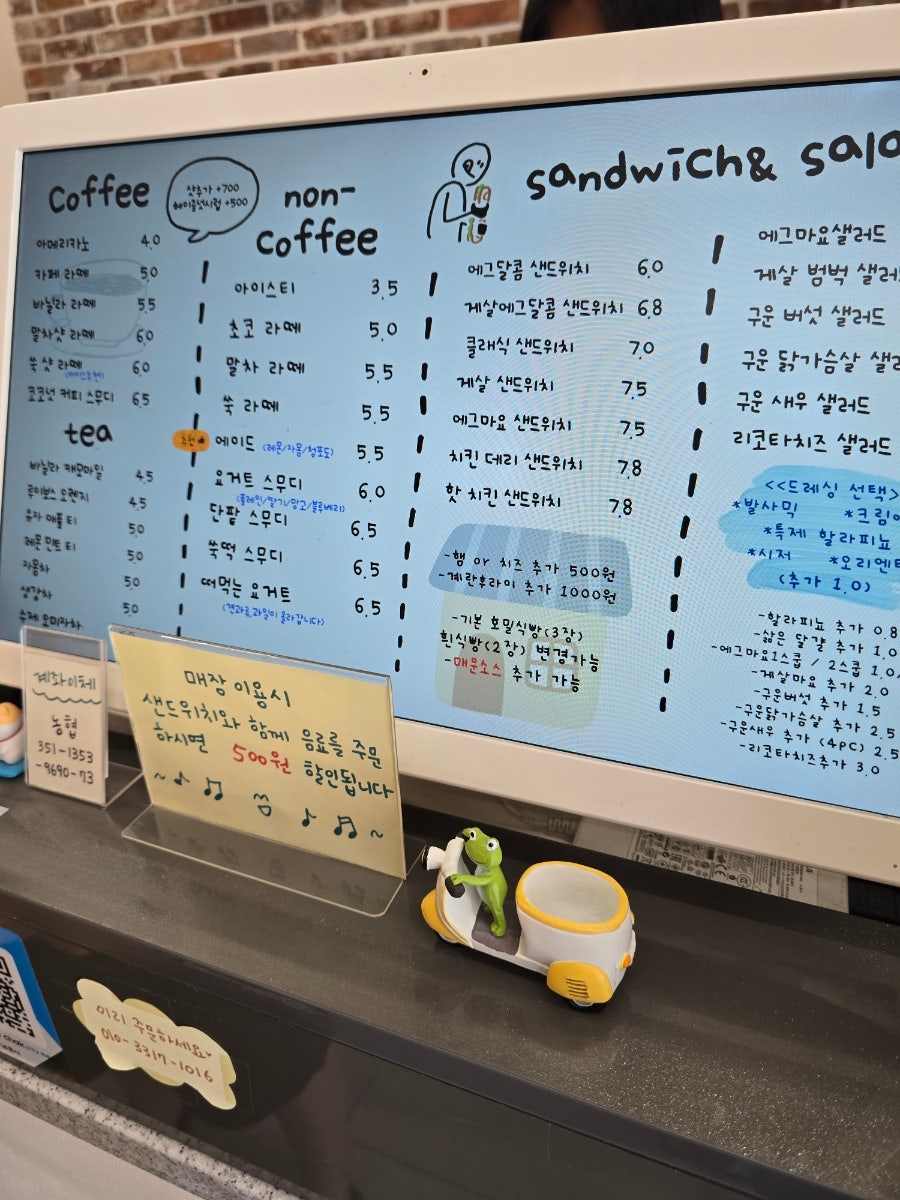 Coffee
샷추가 +700
헤이즐넛시럽 +500
아메리카노 4.0
카페 라떼 5.0
바닐라 라떼 5.5
말차샷 라떼 6.0
쑥 샷 라떼 6.0
코코넛 커피 스무디 6.5
tea
바닐라 캐모마일 4.5
루이보스 오렌지 4.5
유자 애플 티 5.0
레몬 민트 티 5.0
자몽차 5.0
생강차 5.0
수제 오미자차
non-
coffee
아이스티 3.5
초코 라떼 5.0
말차 라떼 5.5
쑥 라떼 5.5
추천
에이드 (레몬/자몽/청포도) 5.5
요거트 스무디 6.0
(플레인/딸기/망고/블루베리)
단팥 스무디 6.5
쑥떡 스무디 6.5
떠먹는 요거트 6.5
(견과류,과일이 올라갑니다)
sandwich& sala
에그달콤 샌드위치 6.0
게살에그달콤 샌드위치 6.8
클래식 샌드위치 7.0
게살 샌드위치 7.5
에그마요 샌드위치 7.5
치킨 데리 샌드위치 7.8
핫 치킨 샌드위치 7.8
-햄 or 치즈 추가 500원
-계란후라이 추가 1000원
-기본 호밀식빵(3장)
흰식빵(2장) 변경가능
-매운소스 추가 가능
에그마요샐러드
게살 범벅 샐러
구운 버섯 샐러드
구운 닭가슴살 샐러
구운 새우 샐러드
리코타치즈 샐러드
<<드레싱 선택>
*발사믹 *크림어
*특제 할라피뇨
*시저 *오리엔탈
(추가 1.0)
-할라피뇨 추가 0.8
-삶은 달걀 추가 1.0
-에그마요1스쿱 / 2스쿱 1.0/
-게살마요 추가 2.0
-구운버섯 추가 1.5
-구운닭가슴살 추가 2.5
-구운새우 추가 (4pc) 2.5
-리코타치즈추가 3.0
계좌이체
농협
351-1353
-9690-73
매장 이용시
샌드위치와 함께 음료를 주문
하시면 500원 할인됩니다
미리 주문하세요♥
010-3317-1016